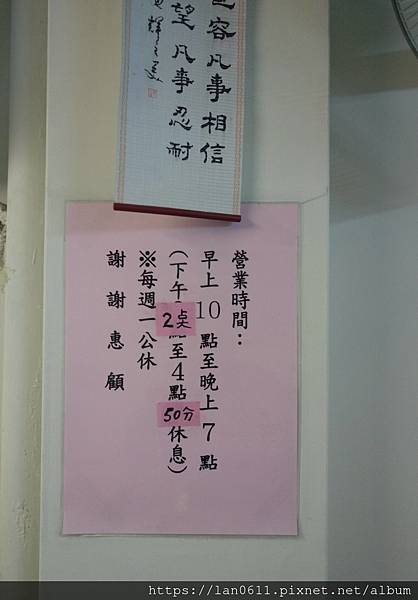 容凡事相信
望凡事忍耐
營業時間：
早上10點至晚上7點
(下午2点至4點50分休息)
※每週一公休
謝謝惠顧
https://lan0611.pixnet.net/album